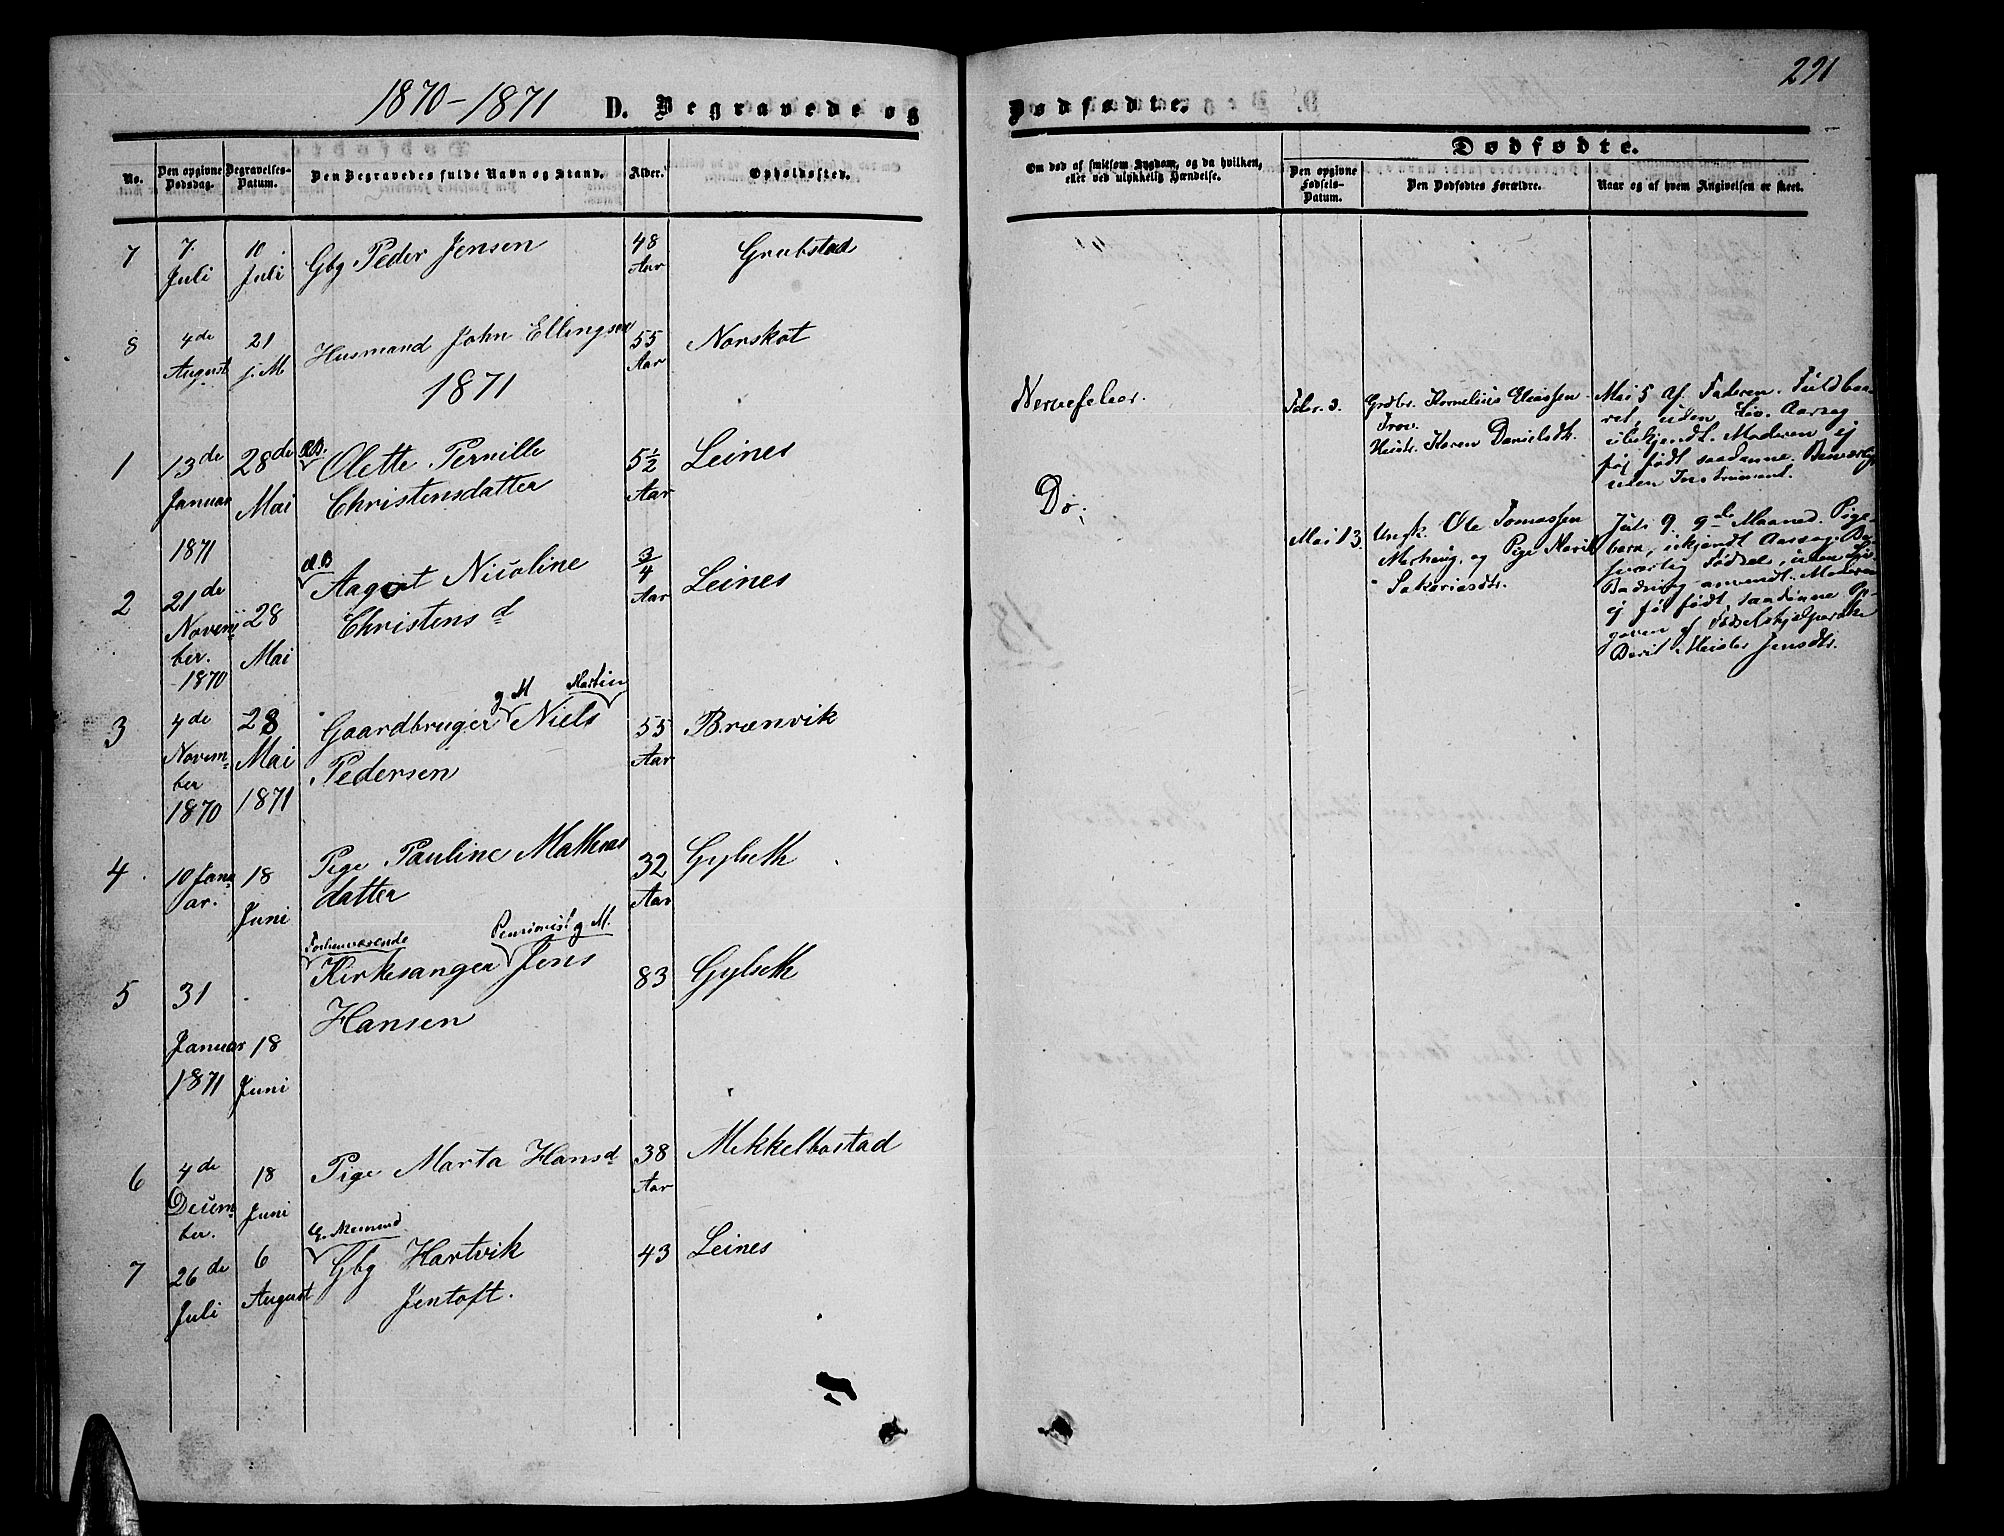 1870-1871 D. Begravede og
Dødfødte.
291
No.
Den opgivne Dødsdag.
Begravelses-Datum.
Den Begravedes fulde Navn og Stand.
Alder.
Opholdssted.
Om død af smitsom Sygdom, og da hvilken,
eller ved ulykkelig Hændelse.
Dødfødte.
Den opgivne Fødsels-Datum.
Den Dødfødtes Forældre.
Naar og af hvem Angivelsen er skeet.
7 7. Juli 10 Juli Gbg Peder Jensen 48 Aar Grubstad
8 4de August 21 s. M Husmand John Ellingsen 55 Aar Norskot
1871
1 13de Januar 1871 28de Mai Olette Pernille
Christensdatter 5½ Aar Leines
2 21de Novem-ber. -1870 28 Mai Aagot Nicoline
Christensd ¾ Aar Leines
3 4de Novem-ber 1870 28 Mai 1871 Gaardbruger g M Niels Martin
Pedersen 55 Aar Brænvik
4 10 Janu-ar. 18 Juni Pige Pauline Mathias
datter 32 Aar Gylseth
5 31 Januar 1871 18 Juni Forhenværende Kirkesanger Pensionist g M. Jens
Hansen 83 Gylseth
6 4de Decem-ber. 18 Juni Pige Marta Hansd 38 Aar Mekkelbostad
7 26de Juli 6 August Gbg Hartvik
Jentoft. 43 Leines
Nervefeber.
Do.
Febr. 3. Grdbr. Kornelius Eliassen
Hustr. Karen Danielsdtr.
Mai 5 Af Faderen. Fuldbaa-
ret, uden Liv. Aarsag
ubekjendt. Moderen ej
før født saadanne.
uden Instrument.
Mai 13. Ungk. Ole Tomassen
og Pige Marit
Sakariasdtr.
Juli 9. 9de Maaned. Pige-
barn, ukjendt Aarsag. Be-
sværlig Fødsel, uden
anvendt. Moderen
ej før født saadanne Op-
given af Fødselshjelperske
Berit Jensdtr.